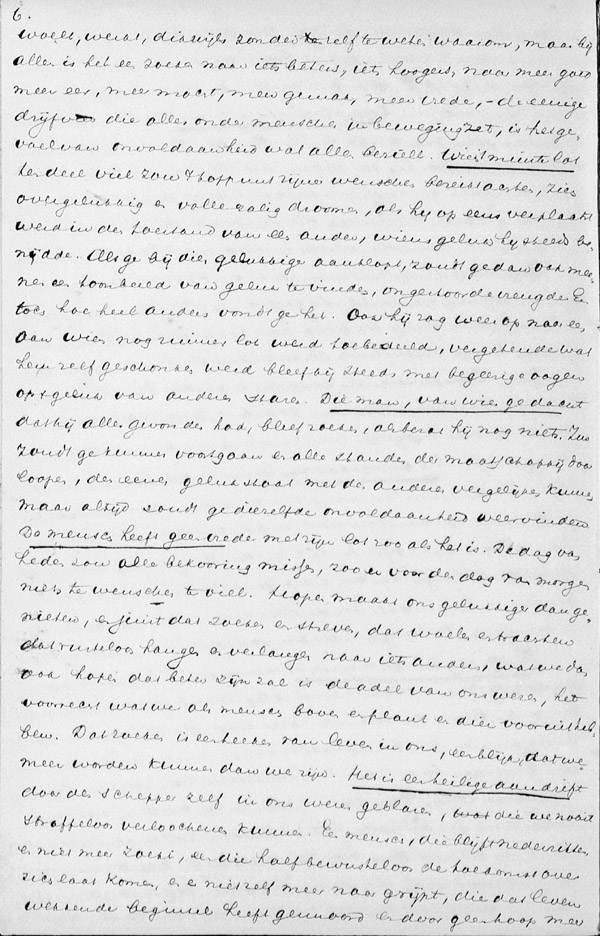 6.
woelt, werkt, dikwijls zonder zelf te weten waarom, maar bij
alles is het een zoeken naar iets beters, iets hoogers, naar meer goed
meer eer, meer macht, meer gemak, meer vrede, - de eenige
drijfveer die alles onder menschen in beweging zet, is het ge-
voel van onvoldaanheid wat allen bezielt. Wiens minste lot
ten deel viel zou 't toppunt zijner wenschen bereikt achten, zich
overgelukkig en volle zalig droomen, als hij op eens verplaatst
werd in den toestand van een ander, wiens geluk hij steeds be-
nijdde. Als ge bij dien gelukkige aanklopt, zoudt ge dan ook mee-
nen een toonbeeld van geluk te vinden, ongestoorde vreugde En
toch hoe heel anders vondt ge het. Ook hij zag weer op naar een
aan wien nog ruimer lot werd toebedeeld, vergetende wat
hem zelf geschonken werd bleef hij steeds met begeerige oogen
op 't geluk van anderen staren. Die man, van wien ge dacht
dat hij alles gevonden had, bleef zoeken, als bezat hij nog niets. Zoo
zoudt ge kunnen voortgaan en alle standen der maatschappij door
loopen, den eenen gelukstaat met den anderen vergelijken kunnen
maar altijd zoudt ge diezelfde onvoldaanheid weervinden
De mensch heeft geen vrede met zijn lot zoo als het is. De dag van
heden zou alle bekooring missen, zoo er voor den dag van morgen
niets te wenschen te viel. Hopen maakt ons gelukkiger dan ge-
nieten, en juist dat zoeken en streven, dat woelen en trachten
dat rusteloos hangen en verlangen naar iets anders, wat we dan
ook hopen dat beter zijn zal is de adel van ons wezen, het
voorrecht wat we als mensch boven plant en dier vooruit heb-
ben. Dat zoeken is een teeken van leven in ons, een blijk, dat we
meer worden kunnen dan we zijn. Het is een heilige aandrift
door den Schepper zelf in ons wezen geblazen, die we nooit
straffeloos verloochenen kunnen. Een mensch, die blijft nederzitten
en niet meer zoekt, en die half bewusteloos de toekomst over
zich laat komen, en er niet zelf meer naar grijpt, die dat leven
wekkende beginsel heeft gesmoord en door geen hoop meer